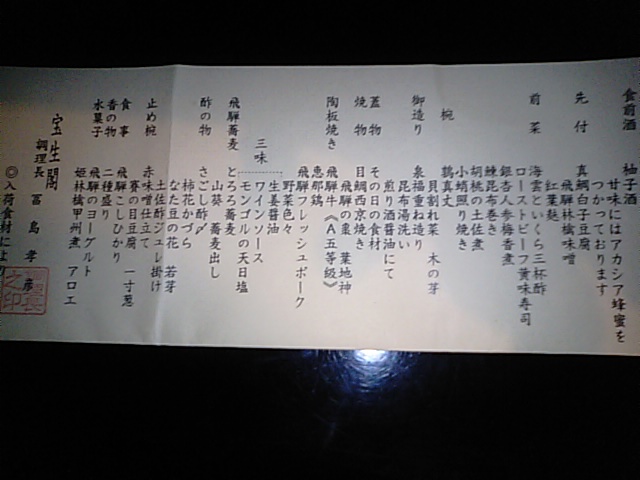 食前酒 柚子酒
甘味にはアカシア蜂蜜を
つかっております
先付 真鯛白子豆腐
飛騨林檎味噌
紅葉麩
前菜 海雲といくら三杯酢
ローストビーフ黄味寿司
銀杏人参梅香煮
鰊昆布巻き
胡桃の土佐煮
小蜻照り焼き
椀 鶉真丈
貝割れ菜 木の芽
御造り 泉福重ね造り
昆布湯洗い
煎り酒醤油にて
蓋物 その日の食材
焼物 目鯛西京焼き
飛騨の棗 葉地神
陶板焼き 飛騨牛《A五等級》
恵那鶏
飛騨フレッシュポーク
野菜色々
三味 生姜醤油
ワインソース
モンゴルの天日塩
飛騨蕎麦 とろろ蕎麦
山葵 蕎麦出し
酢の物 さごし酢〆
柿花かづら
なた豆の花 若芽
土佐酢ジュレ掛け
止め椀 赤味噌仕立て
賽の目豆腐 一寸葱
食事 飛騨こしひかり
香の物 二種盛り
水菓子 飛騨のヨーグルト
姫林檎甲州煮 アロエ
宝生閣
調理長 冨島孝彦
◎入荷食材により